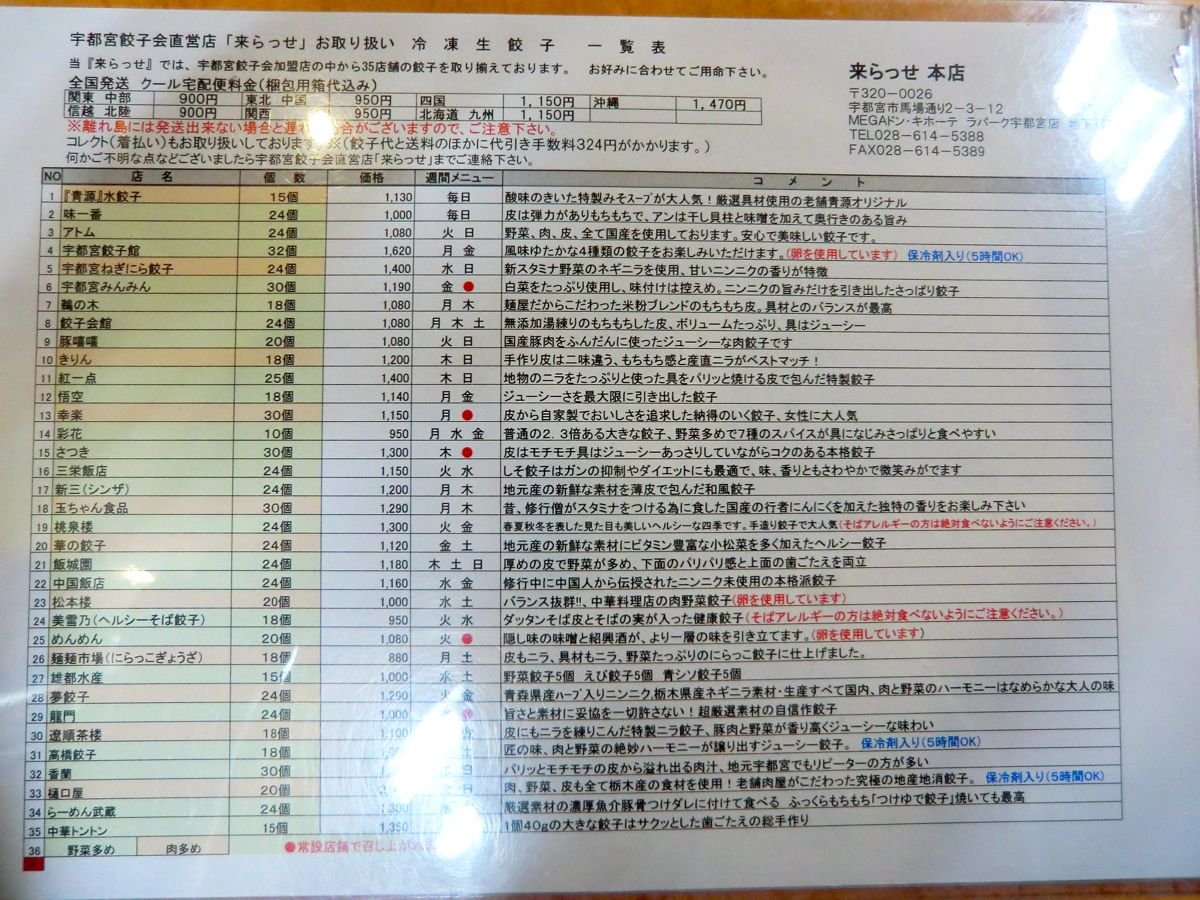 宇都宮餃子会直営店「来らっせ」お取り扱い 冷凍生餃子 一覧表
当『来らっせ』では、宇都宮餃子会加盟店の中から35店舗の餃子を取り揃えております。 お好みに合わせてご用命下さい。
全国発送 クール宅配便料金(梱包用箱代込み)
関東 中部 900円 東北 中国 950円 四国 1,150円 沖縄 1,470円
信越 北陸 900円 関西 950円 北海道 九州 1,150円
来らっせ 本店
〒320-0026
宇都宮市馬場通り2-3-12
MEGAドン・キホーテ ラパーク宇都宮店 地下1
TEL028-614-5388
FAX028-614-5389
※離れ島には発送出来ない場合と遅れ 場合がございますので、ご注意下さい。
コレクト(着払い)もお取り扱いしております ※(餃子代と送料のほかに代引き手数料324円がかかります。)
何かご不明な点などございましたら宇都宮餃子会直営店「来らっせ」までご連絡下さい。
NO 店名 個数 価格 週間メニュー コメント
1 『青源』水餃子 15個 1,130 毎日 酸味のきいた特製みそスープが大人気!厳選具材使用の老舗青源オリジナル
2 味一番 24個 1,000 毎日 皮は弾力がありもちもちで、アンは干し貝柱と味噌を加えて奥行きのある旨み
3 アトム 24個 1,080 火 日 野菜、肉、皮、全て国産を使用しております。安心で美味しい餃子です。
4 宇都宮餃子館 32個 1,620 月 金 風味ゆたかな4種類の餃子をお楽しみいただけます。(卵を使用しています) 保冷剤入り(5時間OK)
5 宇都宮ねぎにら餃子 24個 1,400 水 日 新スタミナ野菜のネギニラを使用、甘いニンニクの香りが特徴
6 宇都宮みんみん 30個 1,190 金 ● 白菜をたっぷり使用し、味付けは控えめ。ニンニクの旨みだけを引き出したさっぱり餃子
7 鵜の木 18個 1,080 月 木 麺屋だからこだわった米粉ブレンドのもちもち皮。具材とのバランスが最高
8 餃子会館 24個 1,080 月 木 土 無添加湯練りのもちもちした皮、ボリュームたっぷり、具はジューシー
9 豚嘻嘻 20個 1,080 火 日 国産豚肉をふんだんに使ったジューシーな肉餃子です
10 きりん 18個 1,200 木 日 手作り皮は二味違う、もちもち感と産直ニラがベストマッチ!
11 紅一点 25個 1,400 木 日 地物のニラをたっぷりと使った具をパリッと焼ける皮で包んだ特製餃子
12 悟空 18個 1,140 月 金 ジューシーさを最大限に引き出した餃子
13 幸楽 30個 1,150 月 ● 皮から自家製でおいしさを追求した納得のいく餃子、女性に大人気
14 彩花 10個 950 月 水 金 普通の2.3倍ある大きな餃子、野菜多めで7種のスパイスが具になじみさっぱりと食べやすい
15 さつき 30個 1,300 木 ● 皮はモチモチ具はジューシーあっさりしていながらコクのある本格餃子
16 三栄飯店 24個 1,150 火 水 しそ餃子はガンの抑制やダイエットにも最適で、味、香りともさわやかで微笑みがでます
17 新三(シンザ) 24個 1,200 月 木 地元産の新鮮な素材を薄皮で包んだ和風餃子
18 玉ちゃん食品 30個 1,290 月 木 昔、修行僧がスタミナをつける為に食した国産の行者にんにくを加えた独特の香りをお楽しみ下さい
19 桃泉楼 24個 1,300 火 金 春夏秋冬を表した見た目も美しいヘルシーな四季です。手造り餃子で大人気(そばアレルギーの方は絶対食べないようにご注意ください。)
20 華の餃子 24個 1,120 金 土 地元産の新鮮な素材にビタミン豊富な小松菜を多く加えたヘルシー餃子
21 飯城園 24個 1,180 木 土 日 厚めの皮で野菜が多め、下面のパリパリ感と上面の歯ごたえを両立
22 中国飯店 24個 1,160 水 金 修行中に中国人から伝授されたニンニク未使用の本格派餃子
23 松本楼 20個 1,000 水 土 バランス抜群!!、中華料理店の肉野菜餃子(卵を使用しています)
24 美雪乃(ヘルシーそば餃子) 18個 950 火 水 ダッタンそば皮とそばの実が入った健康餃子(そばアレルギーの方は絶対食べないようにご注意ください。)
25 めんめん 20個 1,080 火 ● 隠し味の味噌と紹興酒が、より一層の味を引き立てます。(卵を使用しています)
26 麺麺市場(にらっこぎょうざ) 18個 880 月 土 皮もニラ、具材もニラ、野菜たっぷりのにらっこ餃子に仕上げました。
27 雄都水産 15個 1,000 水 土 野菜餃子5個 えび餃子5個 青シソ餃子5個
28 夢餃子 24個 1,290 火 金 青森県産ハーブ入りニンニク,栃木県産ネギニラ素材・生産すべて国内、肉と野菜のハーモニーはなめらかな大人の味
29 龍門 24個 1,000 ● 旨さと素材に妥協を一切許さない!超厳選素材の自信作餃子
30 遼順茶楼 18個 1,100 皮にもニラを練りこんだ特製ニラ餃子、豚肉と野菜が香り高くジューシーな味わい
31 高橋餃子 18個 匠の味、肉と野菜の絶妙ハーモニーが譲り出すジューシー餃子。 保冷剤入り(5時間OK)
32 香蘭 30個 日 パリッとモチモチの皮から溢れ出る肉汁、地元宇都宮でもリピーターの方が多い
33 樋口屋 20個 肉、野菜、皮も全て栃木産の食材を使用!老舗肉屋がこだわった究極の地産地消餃子。 保冷剤入り(5時間OK)
34 らーめん武蔵 24個 1,300 厳選素材の濃厚魚介豚骨つけダレに付けて食べる ふっくらもちもち「つけゆで餃子」焼いても最高
35 中華トントン 15個 1,350 1個40gの大きな餃子はサクッとした歯ごたえの総手作り
36 野菜多め 肉多め ●常設店舗で召し上がれ